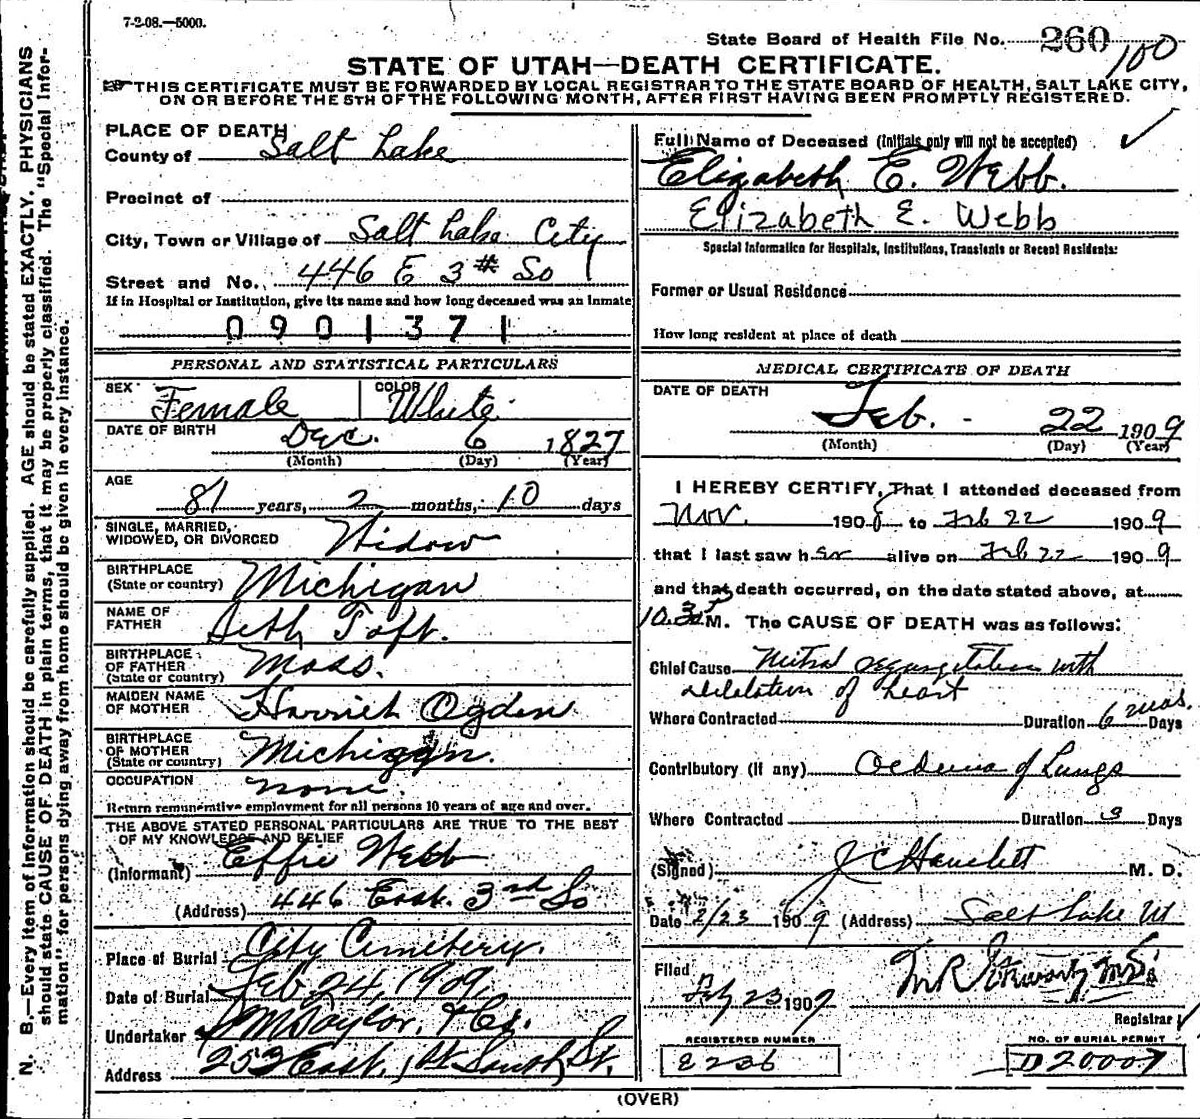 7-2-08.—5000.
State Board of Health File No. 260
100
STATE OF UTAH—DEATH CERTIFICATE.
THIS CERTIFICATE MUST BE FORWARDED BY LOCAL REGISTRAR TO THE STATE BOARD OF HEALTH, SALT LAKE CITY,
ON OR BEFORE THE 5TH OF THE FOLLOWING MONTH, AFTER FIRST HAVING BEEN PROMPTLY REGISTERED.
N. B—Every item of information should be carefully supplied. AGE should be stated EXACTLY. PHYSICIANS
should state CAUSE OF DEATH in plain terms, that it may be properly classified. The "Special Infor-
mation" for persons dying away from home should be given in every instance.
PLACE OF DEATH
County of Salt Lake
Precinct of
City, Town or Village of Salt Lake City
Street and No. 446 E 3rd So
If in Hospital or Institution, give its name and how long deceased was an inmate
0901371
PERSONAL AND STATISTICAL PARTICULARS
SEX Female COLOR White
DATE OF BIRTH Dec. 6 1827
(Month) (Day) (Year)
AGE 81 years, 2 months, 10 days
SINGLE, MARRIED,
WIDOWED, OR DIVORCED Widow
BIRTHPLACE
(State or country) Michigan
NAME OF
FATHER Seth Taft.
BIRTHPLACE
OF FATHER
(State or country) Mass.
MAIDEN NAME
OF MOTHER Harriet Ogden
BIRTHPLACE
OF MOTHER
(State or country) Michigan.
OCCUPATION none.
Return remunerative employment for all persons 10 years of age and over.
THE ABOVE STATED PERSONAL PARTICULARS ARE TRUE TO THE BEST
OF MY KNOWLEDGE AND BELIEF
(Informant) Effie Webb
(Address) 446 East. 3rd So
Place of Burial City Cemetery.
Date of Burial Feb 24, 1909,
Undertaker Taylor, & Co.
Address 252 East. 1st South St.
Full Name of Deceased (Initials only will not be accepted)
Elizabeth E. Webb.
Elizabeth E. Webb
Special Information for Hospitals, Institutions, Transients or Recent Residents:
Former or Usual Residence
How long resident at place of death
MEDICAL CERTIFICATE OF DEATH
DATE OF DEATH
Feb. - 22 1909
(Month) (Day) (Year)
I HEREBY CERTIFY, That I attended deceased from
Nov. 1908 to Feb 22 1909
that I last saw her alive on Feb 22 1909
and that death occurred, on the date stated above, at
10.30 M. The CAUSE OF DEATH was as follows:
Chief Cause Mitral regurgitation with
dilalation of heart
Where Contracted Duration 6 mos. Days
Contributory (if any) Oedema of Lungs
Where Contracted Duration 3 Days
(Signed) J C Hanchett M. D.
Date 2/23 1909 (Address) Salt Lake Ut
Filed
Feb 23 1909 M.D.
Registrar
REGISTERED NUMBER
E236
NO. OF BURIAL PERMIT
D20007
(OVER)